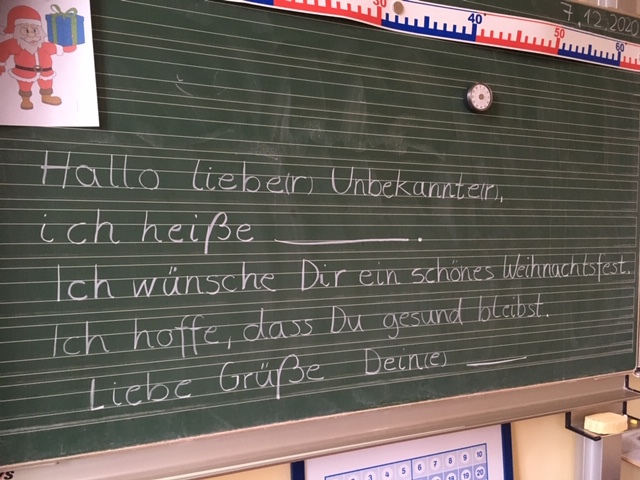 30 40 50 60
7.12.2020
Hallo liebe(r) Unbekannte(r),
ich heiße ______.
Ich wünsche Dir ein schönes Weihnachtsfest.
Ich hoffe, dass Du gesund bleibst.
Liebe Grüße Dein(e) ___
1 2 3 4 5 6 7 8 9 10